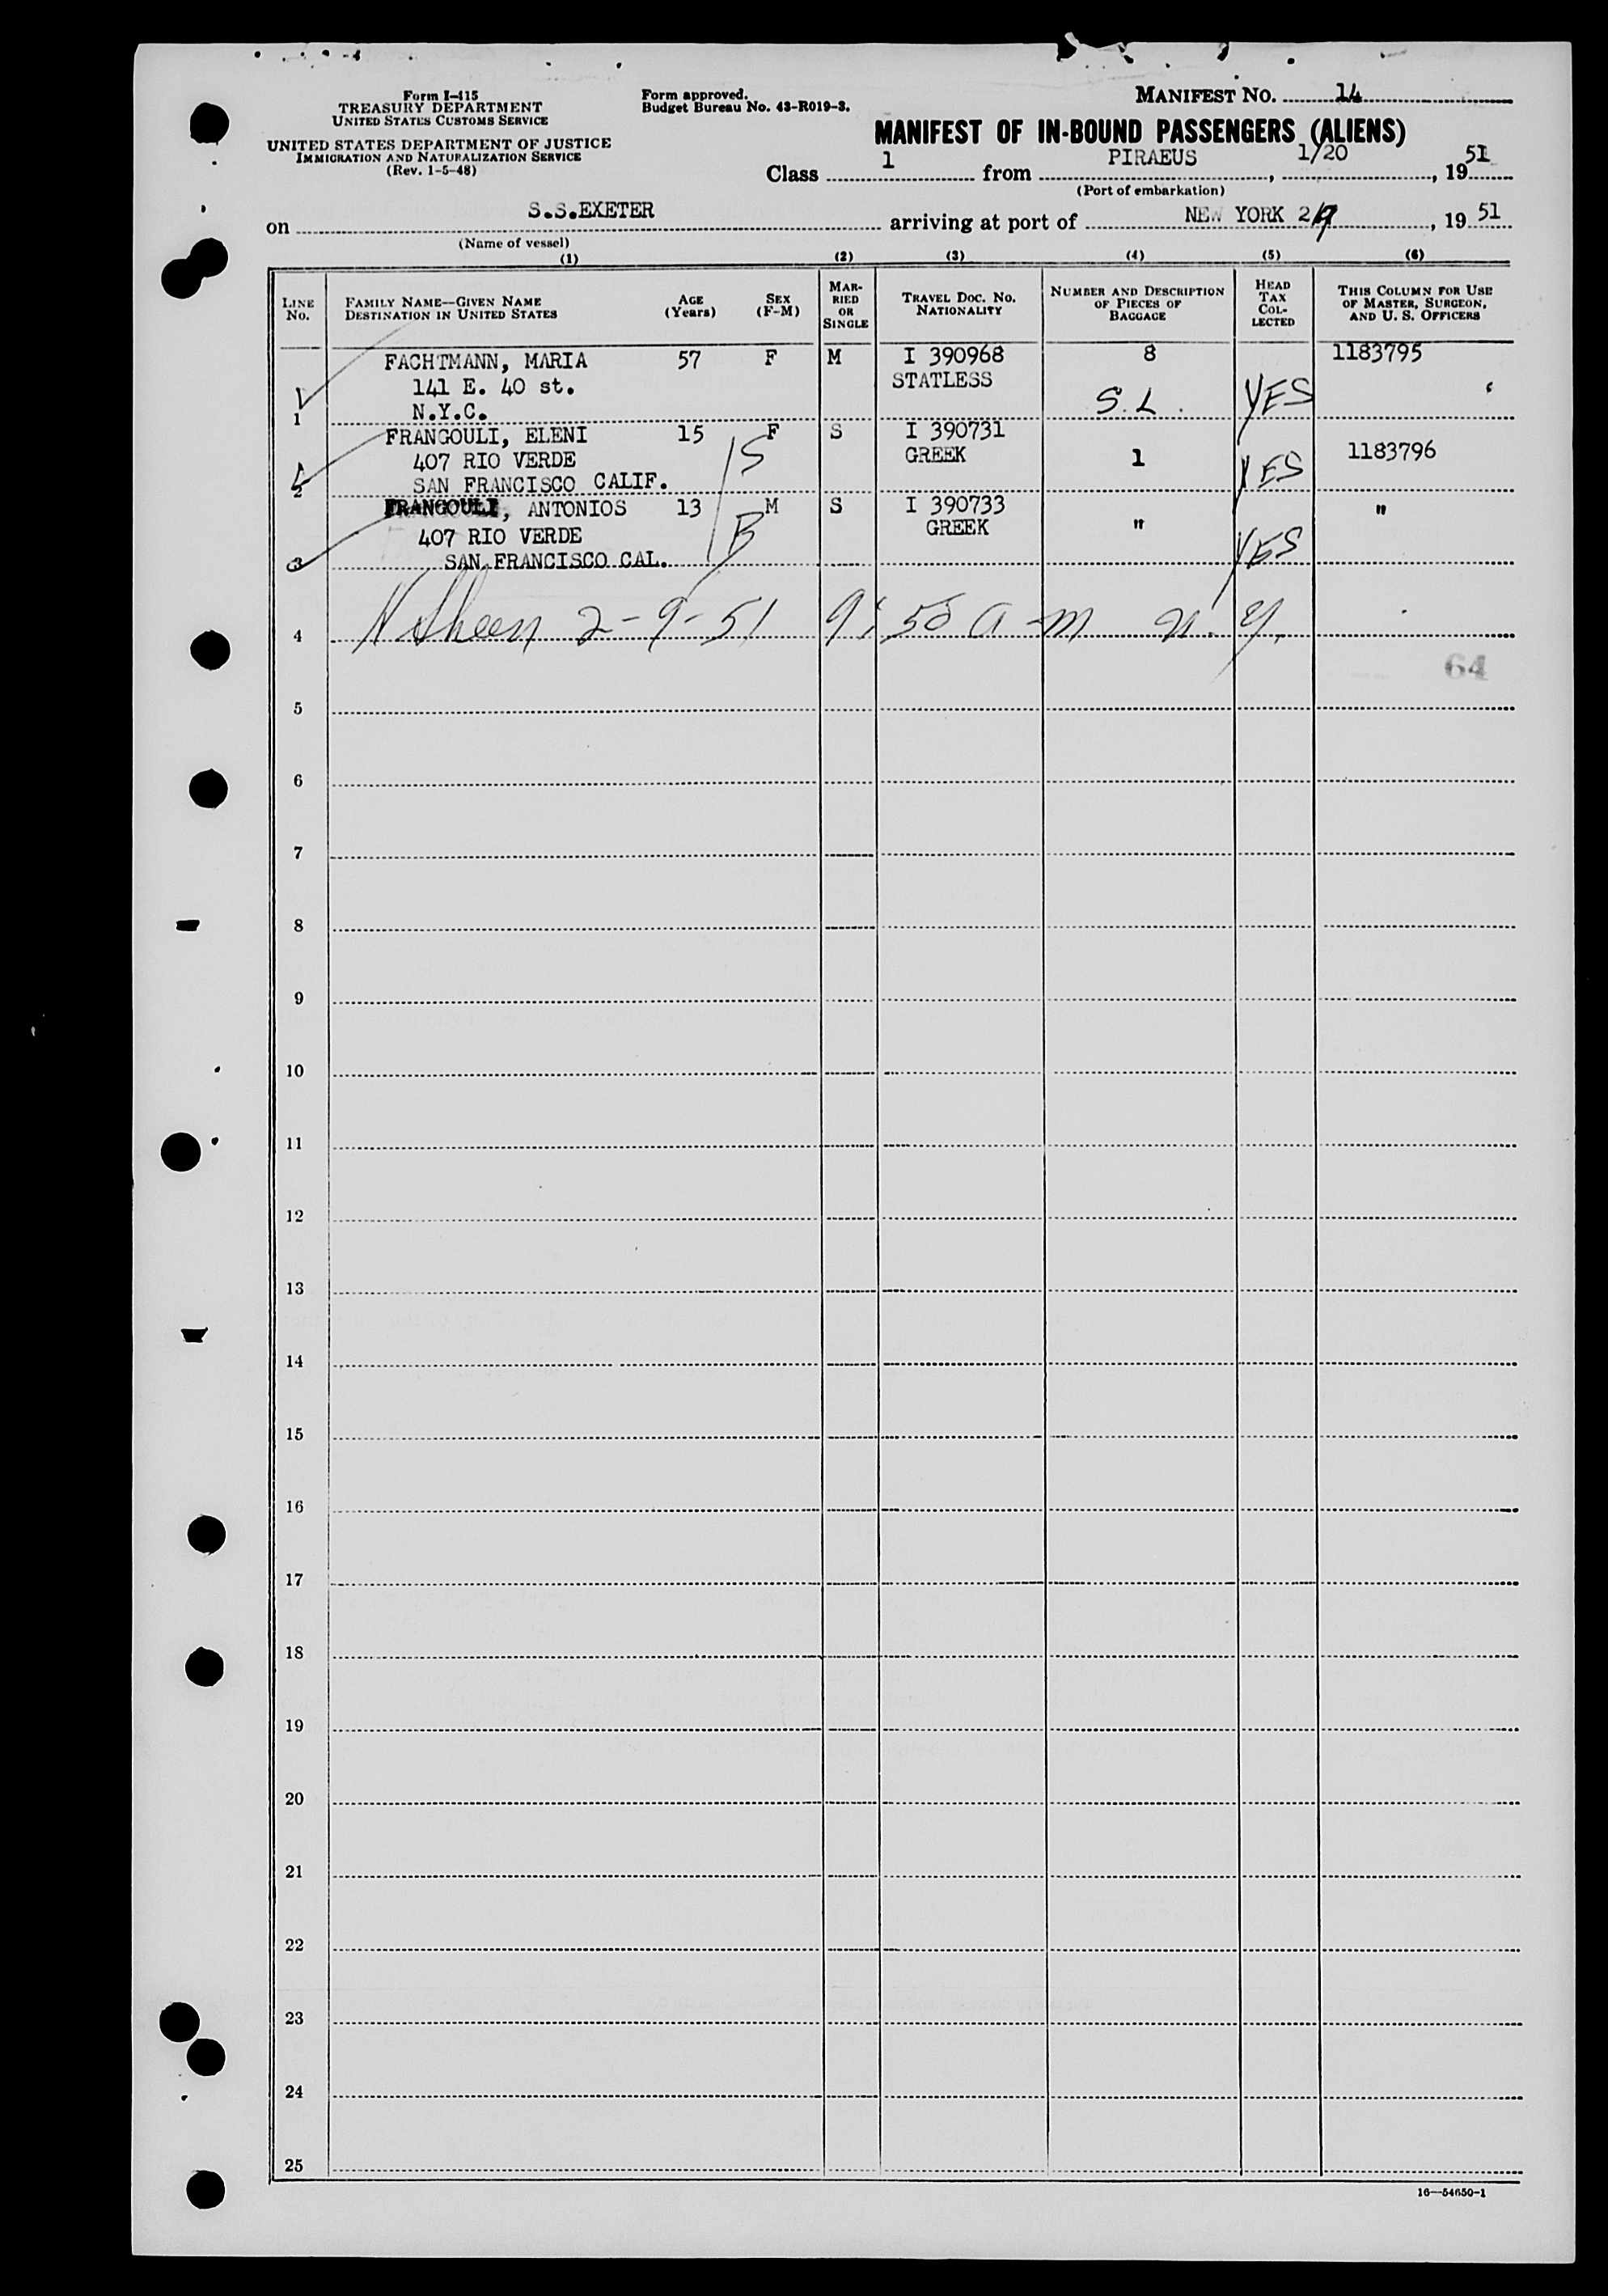 Form I-415
TREASURY DEPARTMENT
UNITED STATES CUSTOMS SERVICE
UNITED STATES DEPARTMENT OF JUSTICE
IMMIGRATION AND NATURALIZATION SERVICE
(Rev. 1-5-48)
Form approved.
Budget Bureau No. 43-R019-3.
MANIFEST NO. 14
MANIFEST OF IN-BOUND PASSENGERS (ALIENS)
Class 1 from PIRAEUS, 1/20, 1951
(Port of embarkation)
on S.S.EXETER arriving at port of NEW YORK 2/9, 1951
(Name of vessel)
(1) (2) (3) (4) (5) (6)
LINE No. FAMILY NAME—GIVEN NAME DESTINATION IN UNITED STATES AGE (Years) SEX (F-M) MARRIED OR SINGLE TRAVEL DOC. NO. NATIONALITY NUMBER AND DESCRIPTION OF PIECES OF BAGGAGE HEAD TAX COLLECTED THIS COLUMN FOR USE OF MASTER, SURGEON, AND U. S. OFFICERS
FACHTMANN, MARIA 57 F M I 390968 8 1183795
141 E. 40 st. STATLESS
1 N.Y.C. S.L. YES
FRANGOULI, ELENI 15 F S I 390731
407 RIO VERDE S GREEK 1 YES 1183796
2 SAN FRANCISCO CALIF.
FRANGOULI, ANTONIOS 13 M S I 390733 "
407 RIO VERDE B GREEK " YES
3 SAN FRANCISCO CAL.
4 2-9-51 9:50 a-m n.y.
64
5
6
7
8
9
10
11
12
13
14
15
16
17
18
19
20
21
22
23
24
25
16—54650-1